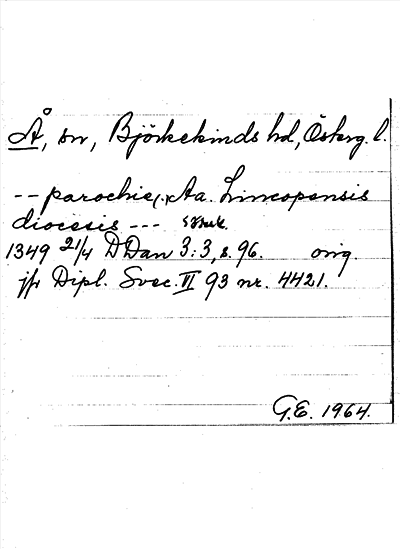 Å, sn, Björkekinds hd, Österg. l.
-- parochie(.) Aa. Lincopensis
diocesis ---
1349 21/4 DDan 3:3, s. 96. orig.
jfr Dipl. Svec. VI 93 nr. 4421.
G.E. 1964.